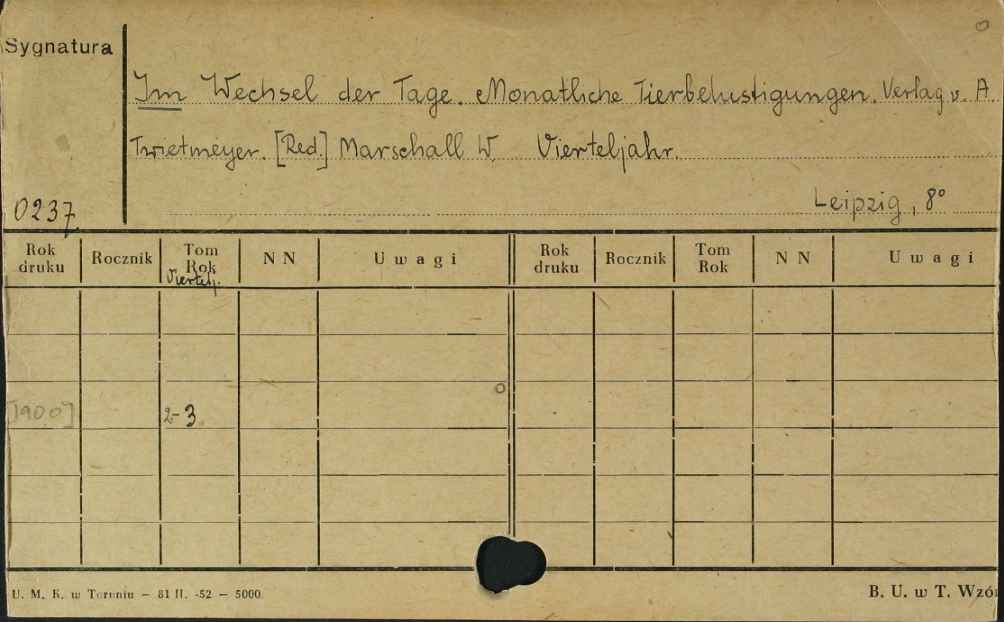 Sygnatura
Im Wechsel der Tage. Monatliche Tierbelustigungen. Verlag v. A.
Twietmeyer. [Red.] Marschall W. Vierteljahr.
Leipzig, 8°
0237
Rok druku Rocznik Tom Rok Viertelj. NN Uwagi Rok druku Rocznik Tom Rok NN Uwagi
[1900] 2-3
U. M. K. w Toruniu — 81 II. -52 — 5000 B. U. w T. Wzó